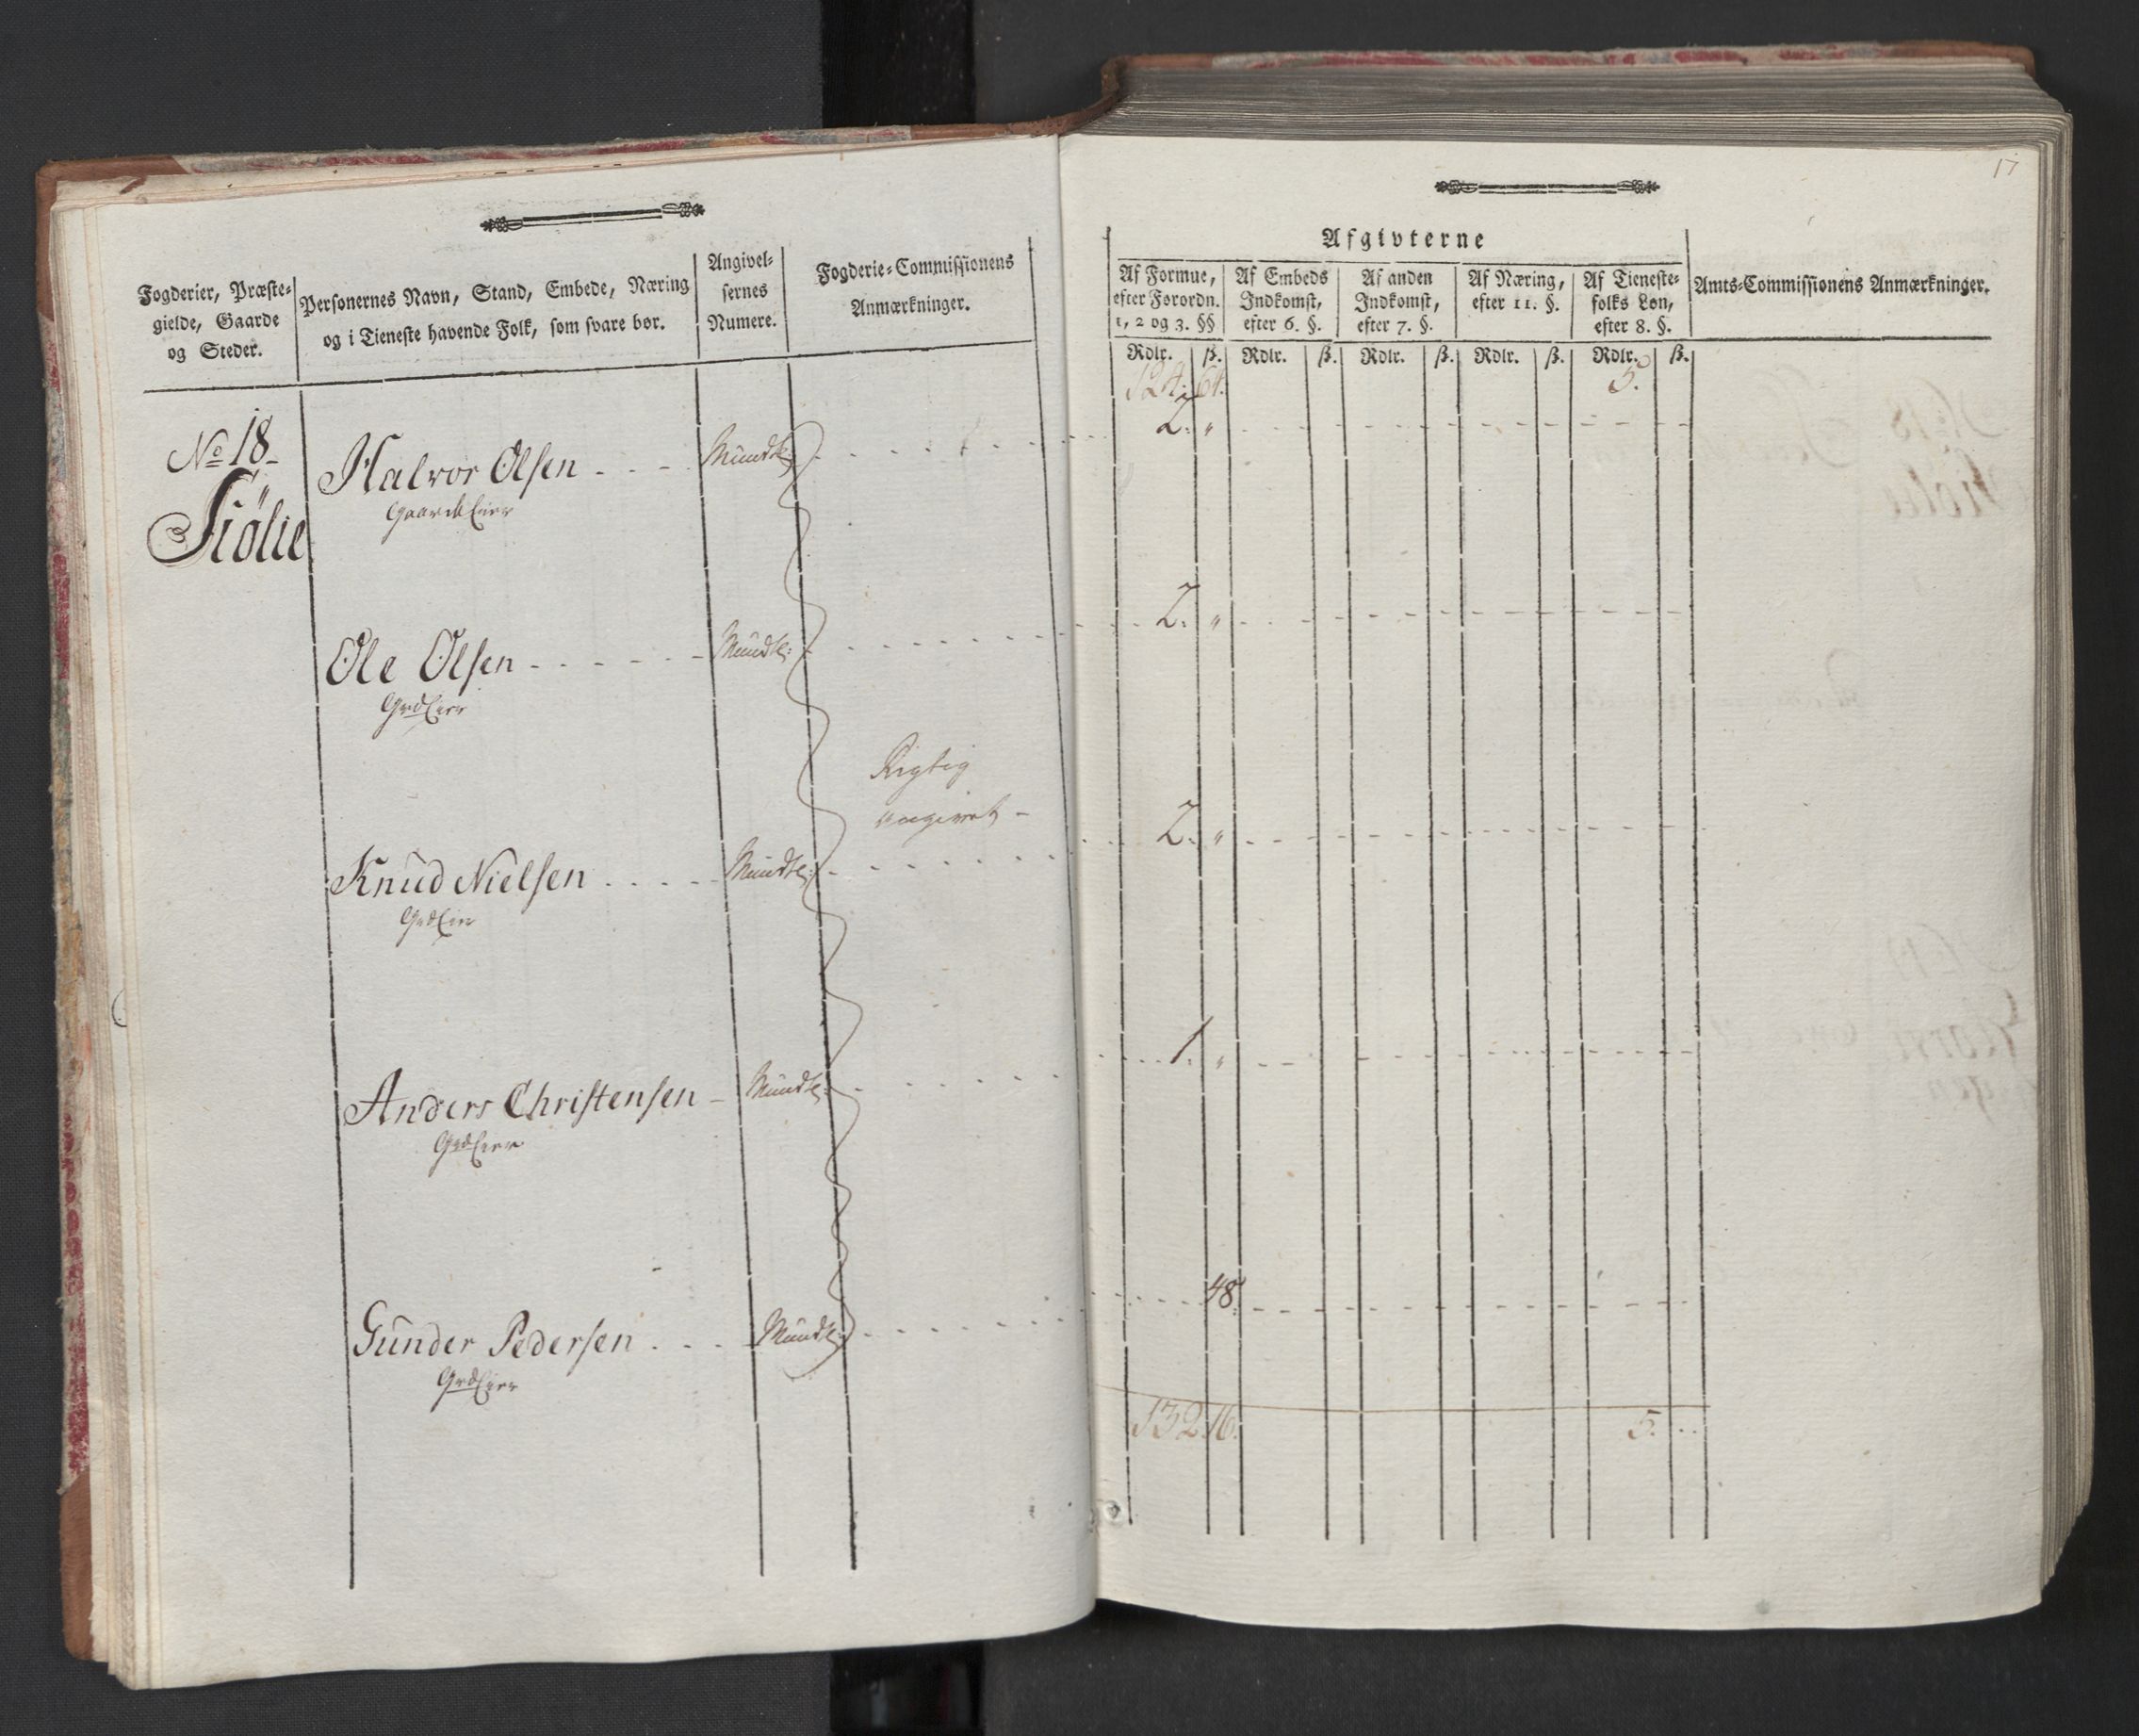 17
Fogderier, Præste-
gielde, Gaarde
og Steder.
Personernes Navn, Stand, Embede, Næring
og i Tieneste havende Folk, som svare bør.
Angivel-
sernes
Numere.
Fogderie-Commissionens
Anmærkninger.
Afgivterne
Af Formue,
efter Forordn.
1, 2 og 3. §§
Af Embeds
Indkomst,
efter 6. §.
Af anden
Indkomst,
efter 7. §.
Af Næring,
efter 11. §.
Af Tieneste-
folks Løn,
efter 8. §.
Amts-Commissionens Anmærkninger.
Rdlr. ß. Rdlr. ß. Rdlr. ß. Rdlr. ß. Rdlr. ß.
124. 64. 5.
No 18
Siølie
Halvor Olsen - - - Mundtl: 2. "
Gaard Eier
Ole Olsen - - - - - - Mundtl: 2. "
GrdEier
Rigtig
angivet -
Knud Nielsen - - - - - Mundtl: 2. "
GrdEier
Anders Christensen - Mundtl: 1. "
GrdEier
Gunder Pedersen - - - Mundtl: 48.
GrdEier
132. 16. 5. "